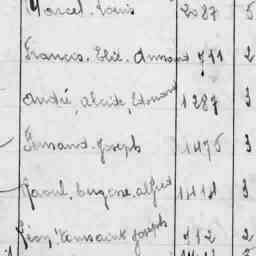 Marcel. Louis 2087 5
Francis. Elie. Armand 711 2
André, Alcide, Edmond 1287 3
Armand. Joseph 1475 3
Raoul, Eugène, Alfred 1414 3
Léon, Toussaint Joseph 712 2